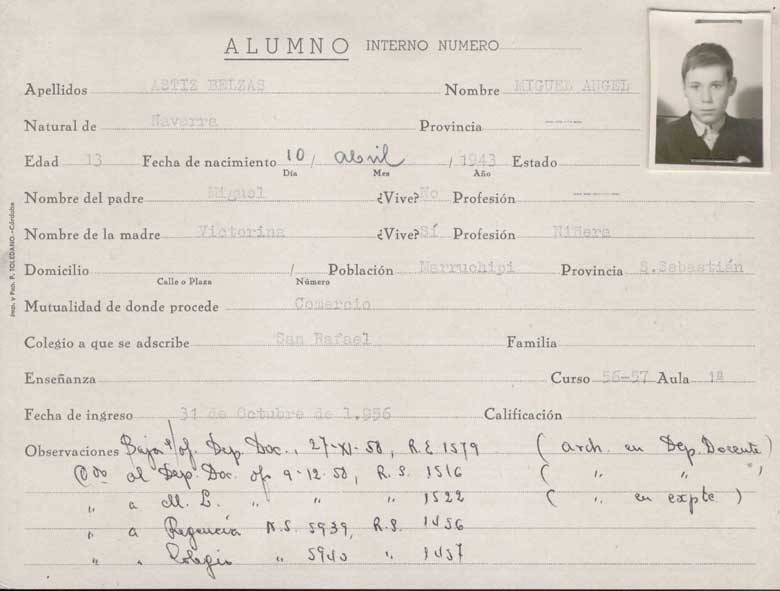 ALUMNO INTERNO NUMERO
Apellidos ASTIZ BELZAS Nombre MIGUEL ANGEL
Natural de Navarra Provincia ----
Edad 13 Fecha de nacimiento 10 / abril / 1943 Estado
Día Mes Año
Nombre del padre Miguel ¿Vive? No Profesión -----
Nombre de la madre Victorina ¿Vive? Sí Profesión Niñera
Domicilio / Población Marruchipi Provincia S.Sebastián
Calle o Plaza Número
Mutualidad de donde procede Comercio
Colegio a que se adscribe San Rafael Familia
Enseñanza Curso 56-57 Aula 1ª
Fecha de ingreso 31 de Octubre de 1.956 Calificación
Observaciones Baja s/of. Dep. Doc., 27-XI-58, R.E. 1579 (arch. en Dep. Docente)
al Dep. Doc. of 9-12-58, R.S. 1516 ( " " )
" a M. L. " " " 1522 ( " en expte )
" a Regencia N.S. 5939, R.S. 1456
" " Colegio " 5940 " 1457
Imp. y Pap. R. TOLEDANO.-Córdoba